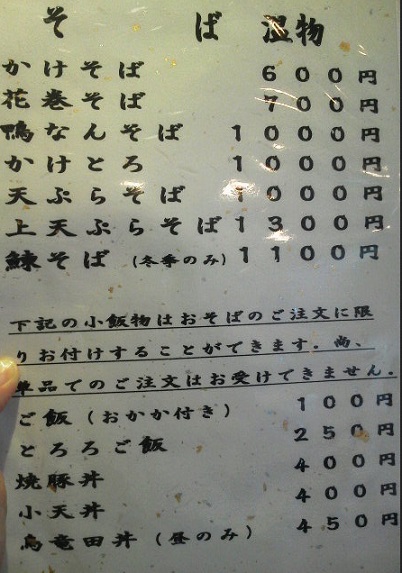 そば 温物
かけそば 600円
花巻そば 700円
鴨なんそば 1000円
かけとろ 1000円
天ぷらそば 1000円
上天ぷらそば 1300円
鰊そば (冬季のみ) 1100円
下記の小飯物はおそばのご注文に限
りお付けすることができます。尚、
単品でのご注文はお受けできません。
ご飯 (おかか付き) 100円
とろろご飯 250円
焼豚丼 400円
小天丼 400円
鳥竜田丼 (昼のみ) 450円